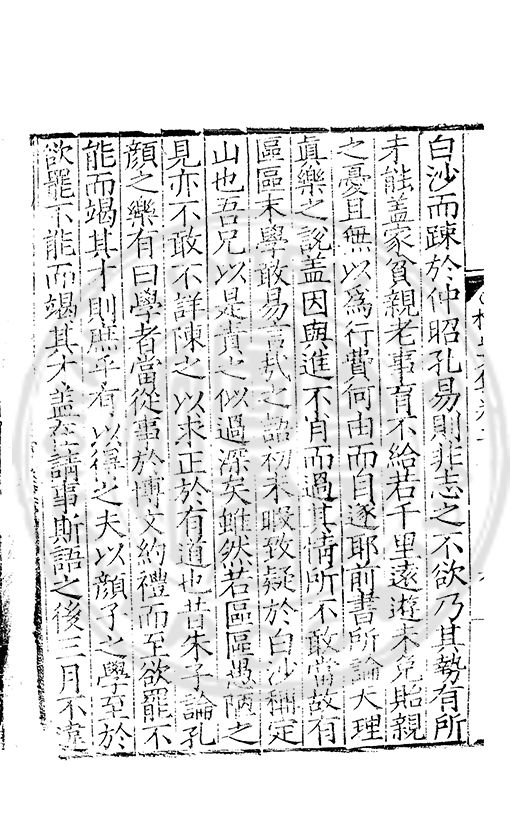 白沙而踈於仲昭孔易則非志之不欲乃其勢有所
未能蓋家貧親老事有不給若千里遠遊未免貽親
之憂且無以爲行費何由而自遂耶前書所論大理
真樂之說蓋因與進不肖而過其情所不敢當故有
區區末學敢易言哉之語初未暇致疑於白沙稱定
山也吾兄以是責之似過深矣雖然若區區愚陋之
見亦不敢不詳陳之以求正於有道也昔朱子論孔
顏之樂有曰學者當從事於博文約禮而至欲罷不
能而竭其才則庶乎有以得之夫以顏子之學至於
欲罷不能而竭其才蓋在請事斯語之後三月不違